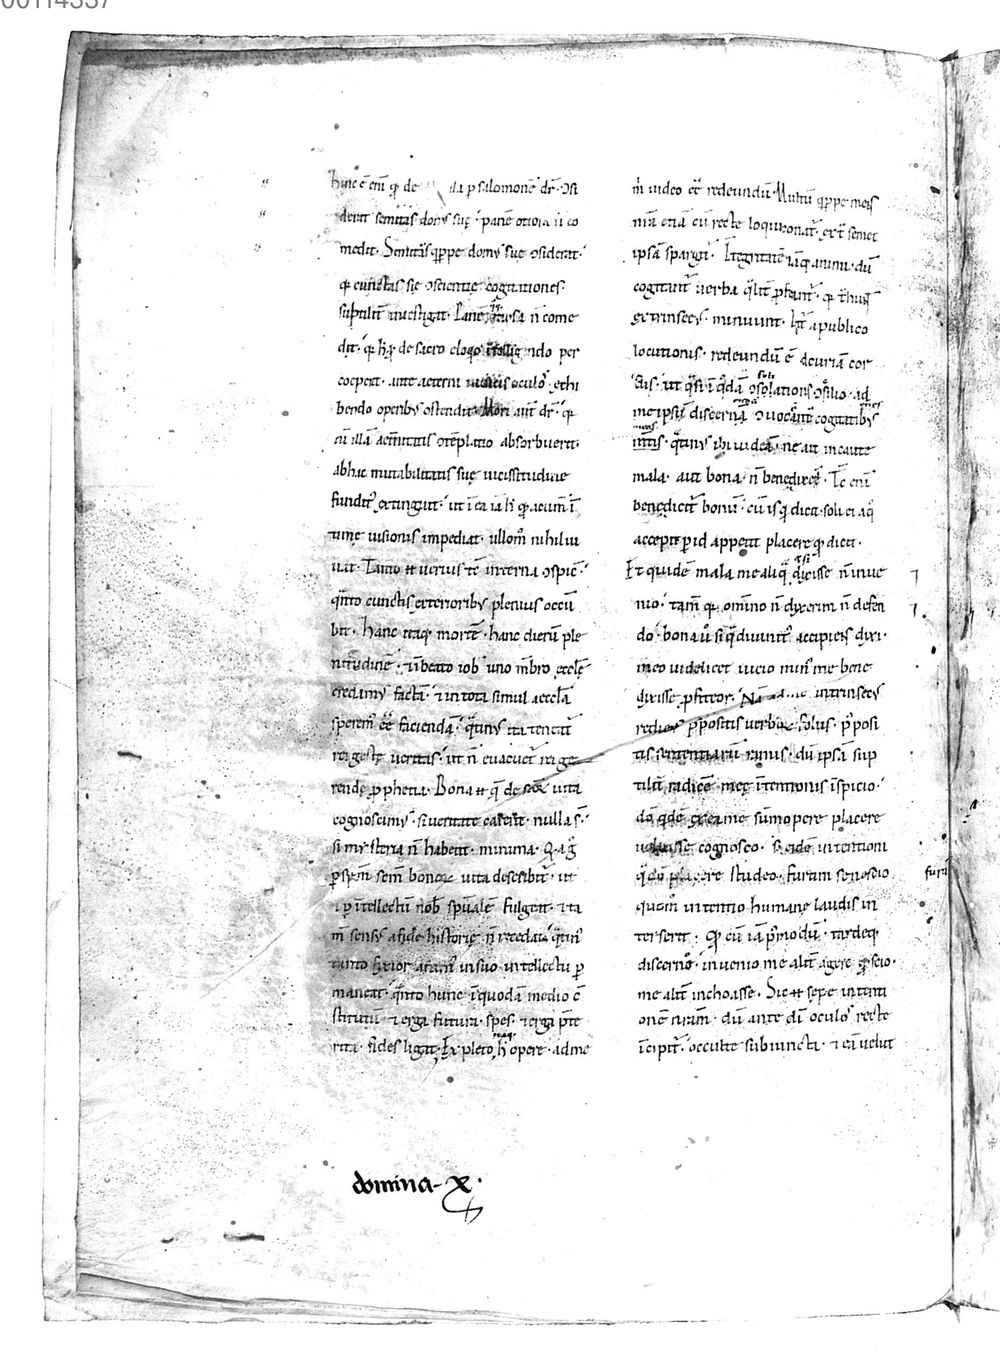 hinc ē eni̅ qd̅ de illa p salomonē dr̅. ↄsi
derauit semitas dom᷒ suę ⁊ panē otiosa n̅ co
medit. Semitas q̅ppe dom᷒ suę ↄsiderat.
q̅ cunctas suę ↄscientię cogitationes
suptilit̅ inuestigat. Panē otiosa n̅ come
dit. q̅ h̅ qd̅ de sacro eloq̅o intelligendo per
coepit. ante aeterni iudicis oculos exhi
bendo operib᷒ ostendit. Mori aut̅ dr̅. q̅
cū illā aet̅nitatis ↄtēplatio absorbuerit.
ab hac mutabilitatis suę uicissitudine
fundit᷒ extinguit.
tune uisionis impediat. ullom̅ nihil ui
uat. Tanto
q̅nto cunctis exteriorib᷒ plenius occū
bit. hanc itaq. mortē. hanc dierū ple
nitudinē. ⁊ i̅ beato iob uno mb̅ro ęcclę
credim᷒ factā. ⁊ in tota simul aecclā
sperem᷒ ēē faciendā. q̅tin᷒ ita teneat̅
rei gestę ueritas. ut n̅ euacuet̅ rei ge
rendę p̅phetia. Bona
cognoscim᷒. si ueritate carent. nulla s̅.
si mysteria n̅ habent. minima. Q̅
uita describit̅. ut
i̅ntellectū nob̅ spūalē fulgeat. ⁊ ta
m̅ sens᷒ a fide historię n̅ recedat. q̅tin᷒
tanto fixior anim᷒ in suo intellectu p
maneat. q̅nto hunc i̅ quodā medio ↄ
stitutū ⁊ erga futura. spes. ⁊ erga p̅te
rita. fides ligat. Expleto itaq. h̅ opere. ad me
m̅ uideo ēē redeundū. Multū q̅ppe meis
m̅a etiā cū recte loqui conat̅. extᷓ semet
ipsā spargit̅. Integritatē namq. animi. dū
cogitant̅ uerba q̅lit̅ p̅ferant̅. q̅ trahunt̅
extrinsec᷒. minuunt. Igit̅ a publico
locutionis. redeundū ē ad curiā cor
dis. ut q̅si i̅ q̅dā ↄsolationis ↄsilio. ad
me ipsū discernendū ↄuocē cogitatiōes
mentis. q̅tin᷒ ibi uideā. ne aut incaute
mala. aut bona. n̅ bene dixerī. Tc̅ eni̅
bene dicit̅ bonū. cū is q̅ dicit. soli ei a q̅
accepit p id appetit placere qd̅ dicit.
Et quidē mala me aliq̅ etsi dixisse n̅ inue
nio. tam̅ qd̅ omnino n̅ dixerim n̅ defen
do. bona u̅ si q̅ diuinit᷒ accipiens dixi.
meo uidelicet uicio min᷒ me bene
dixisse p̅fiteor. Nā intrinsec᷒
rediens p̅positis uerborū foliis. p̅posi
tis sententiarū ramis. dū ipsā sup
tilit̅ radicē. meę i̅tentionis i̅spicio.
dō q̅dē ex ea me su̅mopere placere
uoluisse cognosco. S; eidē intentioni
q̅ dō placere studeo. furtim se nescio
quom̅ intentio humanę laudis in
terserit. Qd̅ cū iā p̅modū. tardeq.
discerno. inuenio me alit̅ agere qd̅ scio.
me alit̅ inchoasse. Sic sepe intenti
onē nr̅am. dū ante dī oculos recte
i̅cipit̅. occulte subiuncta. ⁊ ei uelut
furti
domina- x.